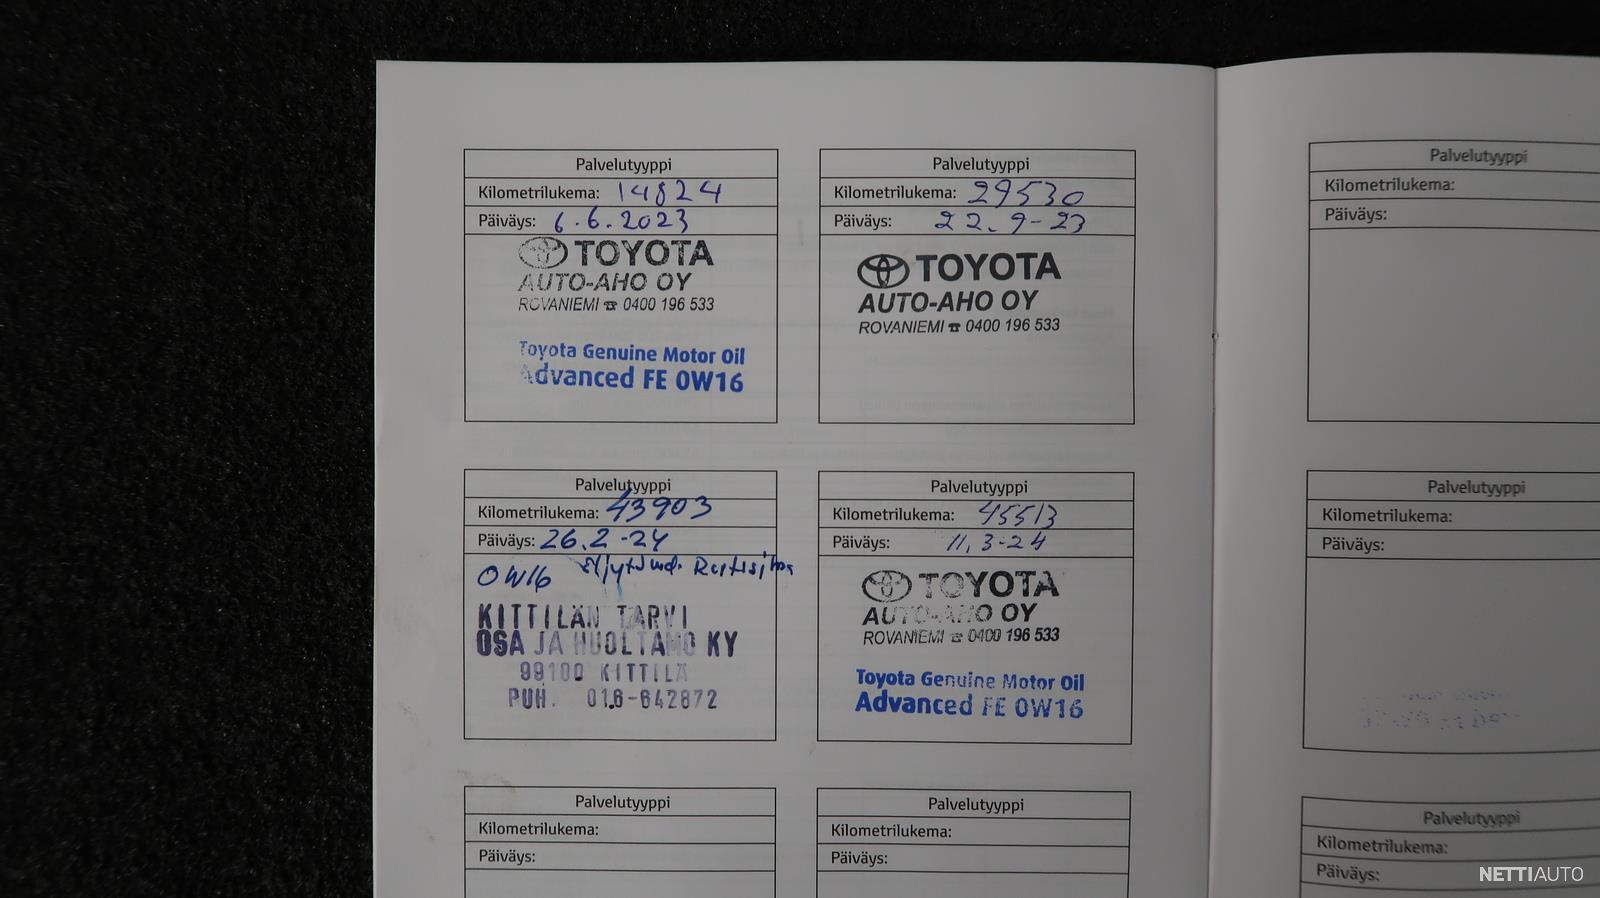 Palvelutyyppi
Kilometrilukema: 14824
Päiväys: 6.6.2023
TOYOTA
AUTO-AHO OY
ROVANIEMI ☎ 0400 196 533
Toyota Genuine Motor Oil
Advanced FE 0W16
Palvelutyyppi
Kilometrilukema: 29530
Päiväys: 22.9-23
TOYOTA
AUTO-AHO OY
ROVANIEMI ☎ 0400 196 533
Palvelutyyppi
Kilometrilukema: 43903
Päiväys: 26.2-24
0W16
KITTILÄN TARVI
OSA JA HUOLTAMO KY
99100 KITTILÄ
PUH. 016-642872
Palvelutyyppi
Kilometrilukema: 45513
Päiväys: 11.3-24
TOYOTA
AUTO-AHO OY
ROVANIEMI ☎ 0400 196 533
Toyota Genuine Motor Oil
Advanced FE 0W16
Palvelutyyppi
Kilometrilukema:
Päiväys:
Palvelutyyppi
Kilometrilukema:
Päiväys:
Palvelutyyppi
Kilometrilukema:
Päiväys:
Palvelutyyppi
Kilometrilukema:
Päiväys:
Palvelutyyppi
Kilometrilukema:
Päiväys:
NETTIAUTO